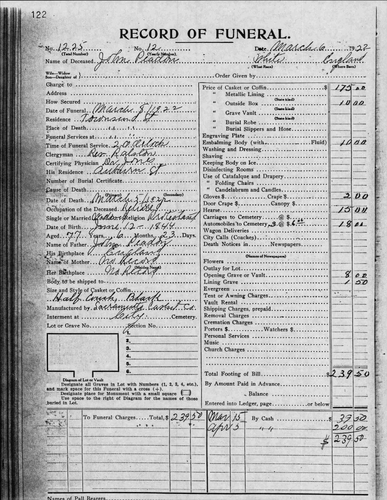 122
RECORD OF FUNERAL.
No. 1225 No. 12 Date March 6 1922
(Total Number) (Yearly Number)
Name of Deceased John White England
(What Race) (Where Born)
Charge to Order Given by
Address Price of Casket or Coffin $ 175 00
How Secured " Metallic Lining
Date of Funeral March 8 1922 " Outside Box 10 00
Residence Townsend St " Grave Vault
Place of Death " Burial Robe
Funeral Services at " Burial Slippers and Hose
Time of Funeral Service 2 O'clock Engraving Plate
Clergyman Rev. Ralston Embalming Body (with Fluid) 10 00
Certifying Physician Dr Jones Washing and Dressing
His Residence Auburn St Shaving
Number of Burial Certificate Keeping Body on Ice
Cause of Death Disinfecting Rooms
Date of Death March 5 1922 Use of Catafalque and Drapery
Occupation of the Deceased " Folding Chairs
Single or Married Religion " Candelabrum and Candles
Date of Birth June 12 1844 Gloves $ Crape $ 2 00
Aged 77 Years 6 Months 23 Days Door Crape $
Name of Father John Hearse 15 00
His Birthplace England Carriages to Cemetery @ $
Name of Mother No Record Automobiles to Cemetery 3 @ $ 6 00 18 00
Her Birthplace No Record Wagon Deliveries
Body, to be shipped to City Calls (Coaches)
Size and Style of Casket or Coffin Death Notices in Newspapers
Half Couch, Black Flowers
Manufactured by Sacramento Casket Co. Outlay for Lot
Interment at City Cemetery Opening Grave or Vault 8 00
Lot or Grave No. Section No. Lining Grave 1 50
1. Evergreen
2. Tent or Awning Charges
3. Vault Rental
4. Shipping Charges, prepaid
5. Removal Charges
6. Cremation Charges
Porters $ Watchers $
Personal Services
Music
Church Charges
Diagram of Lot or Vault
Designate all Graves in Lot with Numbers (1, 2, 3, 4, etc.), Total Footing of Bill $ 239 50
and mark space for this Funeral with a cross (+). By Amount Paid in Advance
Designate place for Monument with a small square Balance
Use space to the right of Diagram for the names of those Entered into Ledger, page or below
buried in Lot.
To Funeral Charges Total, $ 239 50 Mar 15 By Cash 39 50
Apr 3 " " 200 00
$ 239 50
Names of Pall Bearers